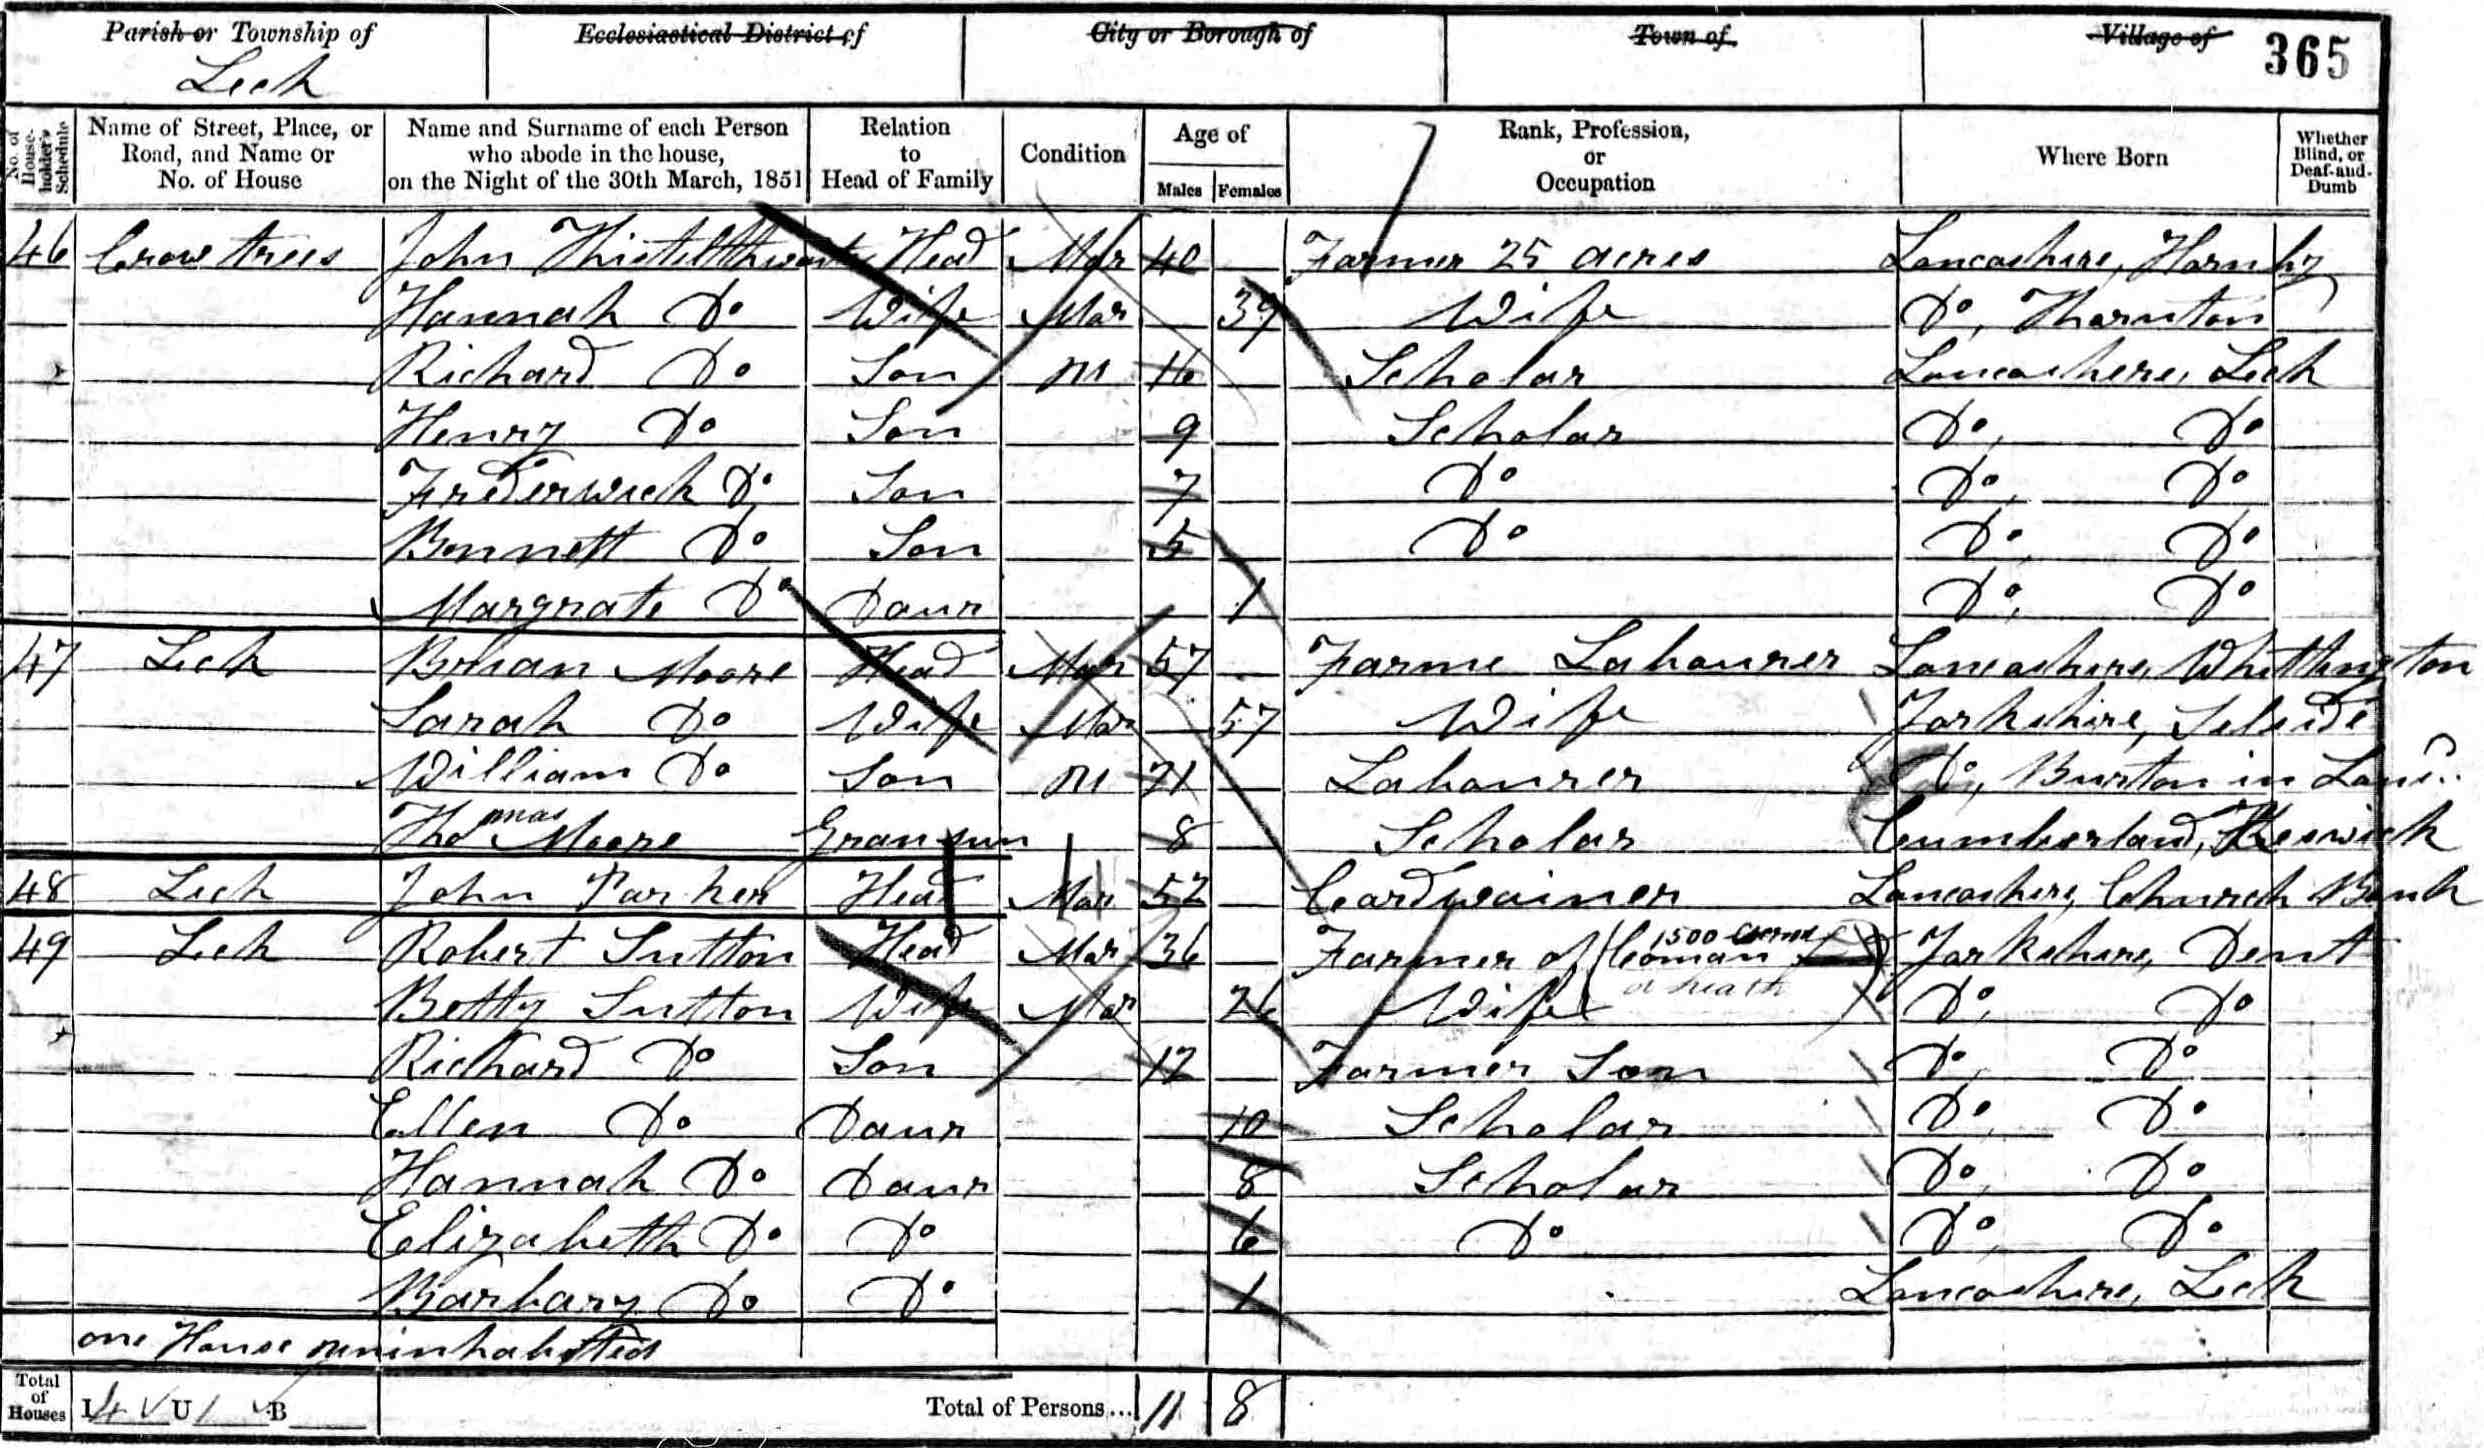 Parish or Township of Ecclesiastical District of City or Borough of Town of Village of 365
Leck
No. of House-holder's Schedule Name of Street, Place, or Road, and Name or No. of House Name and Surname of each Person who abode in the house, on the Night of the 30th March, 1851 Relation to Head of Family Condition Age of Males Females Rank, Profession, or Occupation Where Born Whether Blind, or Deaf-and-Dumb
46 Crow trees John Head Mar 40 Farmer 25 acres Lancashire, Hornby
Hannah Do Wife Mar 39 Wife Do, Thornton
Richard Do Son 16 Scholar Lancashire, Leck
Henry Do Son 9 Scholar Do, Do
Frederwick Do Son 7 Do Do, Do
Bennett Do Son 5 Do Do, Do
Margrate Do Daur 1 Do, Do
47 Leck Brian Moore Head Mar 57 Farme Labourer Lancashire, Whittington
Sarah Do Wife Mar 57 Wife Yorkshire, Selside
William Do Son 21 Labourer Do, Burton in
Thomas Moore Gransun 8 Scholar Cumberland, Keswick
48 Leck John Parker Head Mar 52 Cardwainer Lancashire, Church Bank
49 Leck Robert Sutton Head Mar 36 Farmer of 1500 Yorkshire, Dent
Betty Sutton Wife Mar Wife Do, Do
Richard Do Son 12 Farmer Son Do, Do
Ellen Do Daur 10 Scholar Do, Do
Hannah Do Daur 8 Scholar Do, Do
Elizabeth Do Do 6 Do Do, Do
Barbary Do Do 1 Lancashire, Leck
one House uninhabited
Total of Houses I 4 U 1 B Total of Persons... 11 8